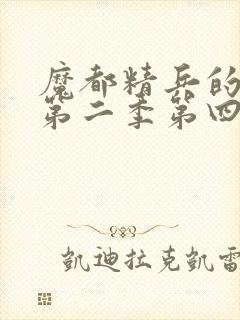 魔都精兵的
第二季第四
凯迪拉克凯雷